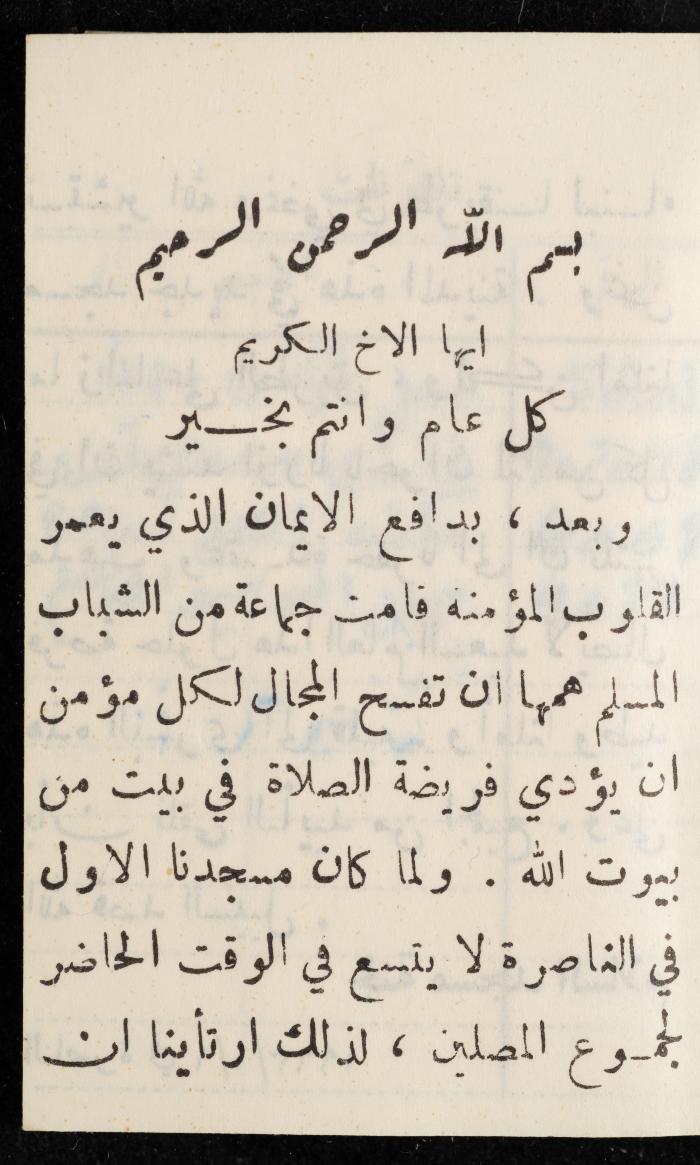 بسم الله الرحمن الرحيم
ايها الاخ الكريم
كل عام وانتم بخير
وبعد ، بدافع الايمان الذي يعمر
القلوب المؤمنه قامت جماعة من الشباب
المسلم همها ان تفسح المجال لكل مؤمن
ان يؤدي فريضة الصلاة في بيت من
بيوت الله . ولما كان مسجدنا الاول
في الناصرة لا يتسع في الوقت الحاضر
لجموع المصلين ، لذلك ارتأينا ان